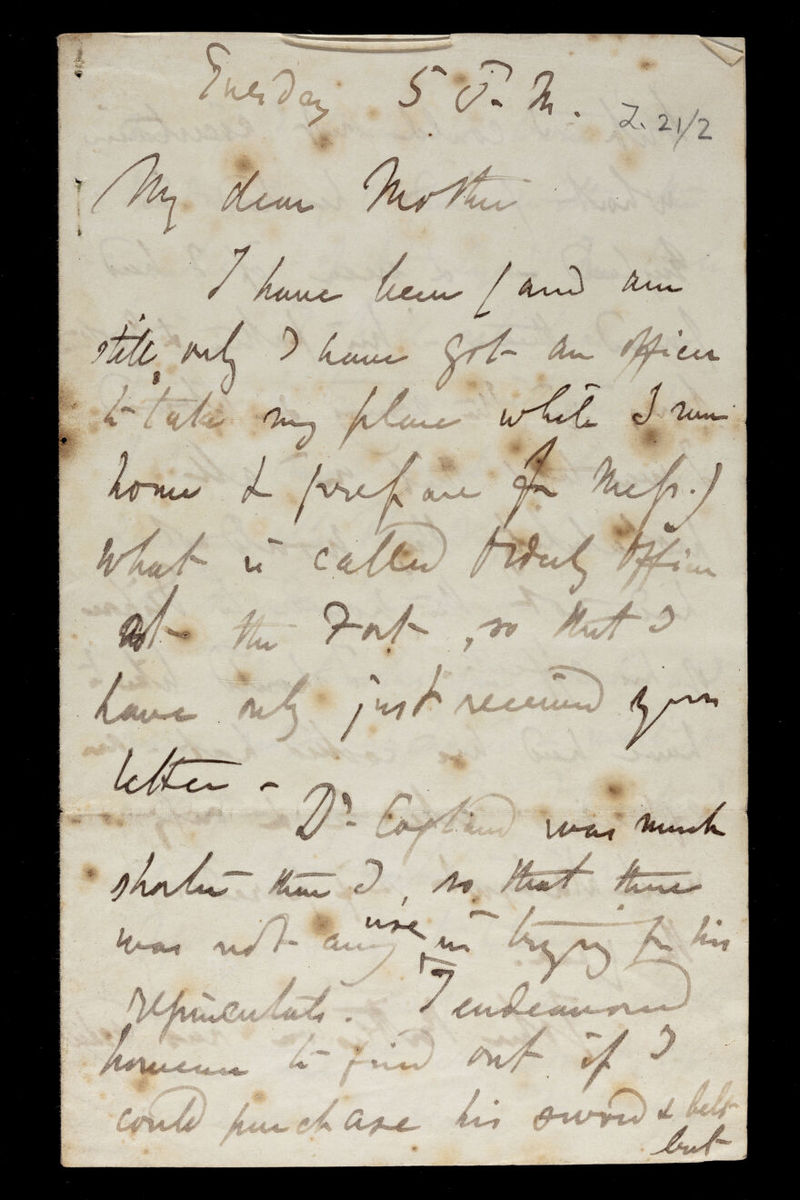 Tuesday 5 P.M.
Z. 21/2
My dear Mother
I have been (and am
still, only I have got an officer
to take my place while I run
home & prepare for Mess.)
what is called Orderly Officer
at the Fort, so that I
have only just received your
letter -
Dr. Copland was much
shorter than I, so that there
was not any use in trying for his
regimentals. I endeavoured
however to find out if I
could purchase his sword & belt
but